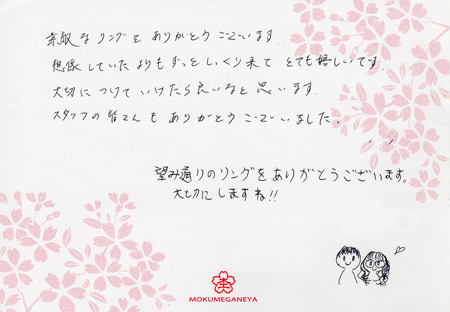 素敵なリングをありがとうございます。
想像していたよりもずっとしっくり来てとても嬉しいです。
大切につけていけたら良いなと思います。
スタッフの皆さんもありがとうございました。
望み通りのリングをありがとうございます。
大切にしますね!!
MOKUMEGANEYA